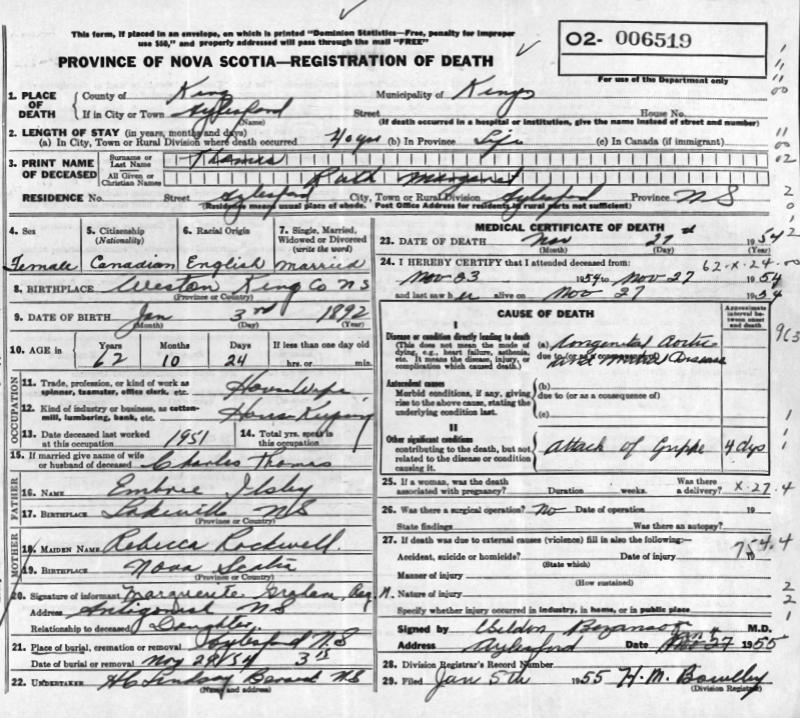 This form, if placed in an envelope, on which is printed "Dominion Statistics—Free, penalty for improper
use $50," and properly addressed will pass through the mail "FREE"
PROVINCE OF NOVA SCOTIA—REGISTRATION OF DEATH
O2- 006519
For use of the Department only
1. PLACE OF DEATH
County of King Municipality of Kings
If in City or Town Aylesford Street House No.
(Name) (If death occurred in a hospital or institution, give the name instead of street and number)
2. LENGTH OF STAY (in years, months and days)
(a) In City, Town or Rural Division where death occurred 40 yrs (b) In Province Life (c) In Canada (if immigrant)
3. PRINT NAME OF DECEASED
Surname or Last Name Thomas
All Given or Christian Names Ruth Margaret
RESIDENCE No. Street Aylesford City, Town or Rural Division Aylesford Province N S
(Residence means usual place of abode. Post Office Address for residents in rural parts not sufficient)
4. Sex
Female
5. Citizenship (Nationality)
Canadian
6. Racial Origin
English
7. Single, Married, Widowed or Divorced (write the word)
Married
8. BIRTHPLACE Weston King Co N S
(Province or Country)
9. DATE OF BIRTH Jan 3rd 1892
(Month) (Day) (Year)
10. AGE in Years Months Days If less than one day old
62 10 24 hrs. or min.
OCCUPATION
11. Trade, profession, or kind of work as spinner, teamster, office clerk, etc. House Wife
12. Kind of industry or business, as cotton-mill, lumbering, bank, etc. House Keeping
13. Date deceased last worked at this occupation 1951
14. Total yrs. spent in this occupation
15. If married give name of wife or husband of deceased Charles Thomas
FATHER
16. NAME Embree Ilsley
17. BIRTHPLACE Lakeville N S
(Province or Country)
MOTHER
18. MAIDEN NAME Rebecca Rockwell
19. BIRTHPLACE Nova Scotia
(Province or Country)
20. Signature of informant Marguerite Graham, Reg. N.
Address Antigonish N S
Relationship to deceased Daughter
21. Place of burial, cremation or removal Aylesford N S
Date of burial or removal Nov 29/54
22. UNDERTAKER H C Lindsay Berwick N S
(Name and address)
MEDICAL CERTIFICATE OF DEATH
23. DATE OF DEATH Nov 27 1954
(Month) (Day) (Year)
24. I HEREBY CERTIFY that I attended deceased from: 62-X-24-00
Nov 23 1954 to Nov 27 1954
and last saw her alive on Nov 27 1954
CAUSE OF DEATH
Approximate interval between onset and death
I
Disease or condition directly leading to death
(This does not mean the mode of dying, e.g., heart failure, asthenia, etc. It means the disease, injury, or complication which caused death.)
(a) Congenital Aortic
due to (or as a consequence of)
and Mitral Disease
Antecedent causes
Morbid conditions, if any, giving rise to the above cause, stating the underlying condition last.
(b)
due to (or as a consequence of)
(c)
II
Other significant conditions
contributing to the death, but not related to the disease or condition causing it.
attack of Grippe 4 dys
25. If a woman, was the death associated with pregnancy? Duration weeks. Was there a delivery? X-27-4
26. Was there a surgical operation? No Date of operation 19
State findings Was there an autopsy?
27. If death was due to external causes (violence) fill in also the following:—
Accident, suicide or homicide? Date of injury 19
(State which)
754.4
Manner of injury
(How sustained)
Nature of injury
Specify whether injury occurred in industry, in home, or in public place
Signed by Weldon Bezanson M.D.
Address Aylesford Date Jan 5 1955
28. Division Registrar's Record Number
29. Filed Jan 5th 1955 H. M. Bowlby
(Division Registrar)